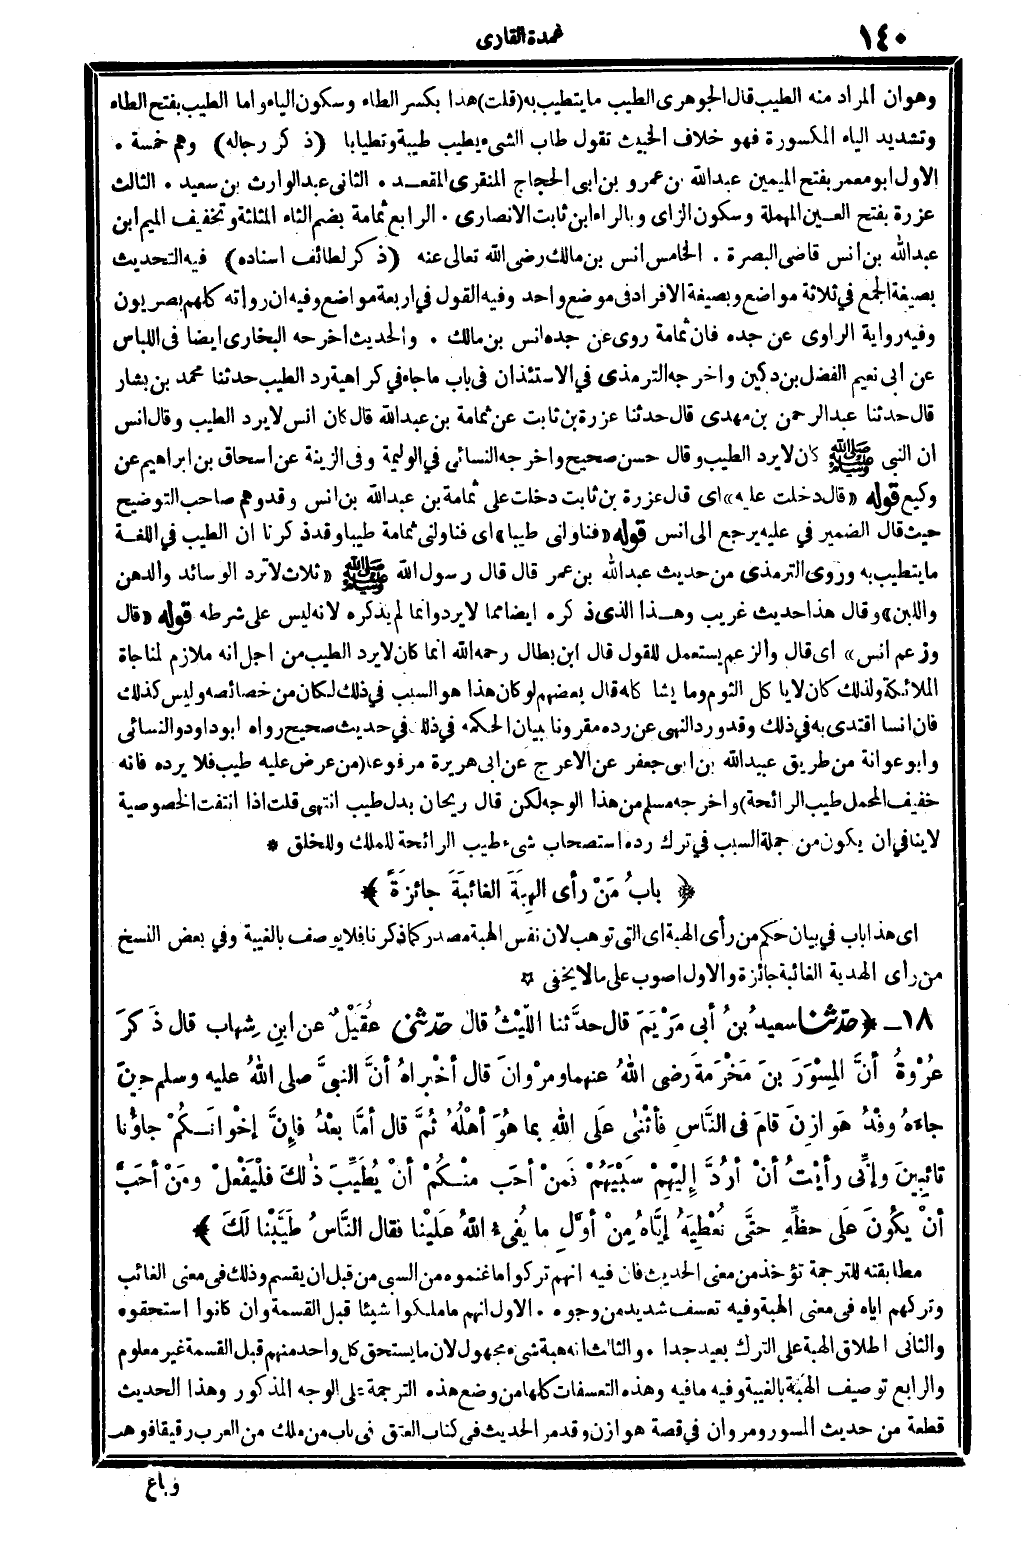 ١٤٠
عمدة القارى
وهو ان المراد منه الطيب قال الجوهرى الطيب ما يتطيب به (قلت) هذا بكسر الطاء وسكون الياء واما الطيب بفتح الطاء
وتشديد الياء المكسورة فهو خلاف الخبيث تقول طاب الشىء يطيب طيبة وتطيابا (ذكر رجاله) وهم خمسة .
الاول ابو معمر بفتح الميمين عبدالله بن عمرو بن ابى الحجاج المنقرى المقعد . الثانى عبدالوارث بن سعيد . الثالث
عزرة بفتح العين المهملة وسكون الزاى وبالراء ابن ثابت الانصارى . الرابع ثمامة بضم الثاء المثلثة وتخفيف الميم ابن
عبدالله بن انس قاضى البصرة . الخامس انس بن مالك رضى الله تعالى عنه (ذكر لطائف اسناده) فيه التحديث
بصيغة الجمع فى ثلاثة مواضع وبصيغة الافراد فى موضع واحد وفيه القول فى اربعة مواضع وفيه ان رواته كلهم بصريون
وفيه رواية الراوى عن جده فان ثمامة روى عن جده انس بن مالك . والحديث اخرجه البخارى ايضا فى اللباس
عن ابى نعيم الفضل بن دكين واخرجه الترمذى فى الاستئذان فى باب ماجاء فى كراهية رد الطيب حدثنا محمد بن بشار
قال حدثنا عبدالرحمن بن مهدى قال حدثنا عزرة بن ثابت عن ثمامة بن عبدالله قال كان انس لا يرد الطيب وقال انس
ان النبى ﷺ كان لا يرد الطيب وقال حسن صحيح واخرجه النسائى فى الوليمة وفى الزينة عن اسحاق بن ابراهيم عن
وكيع قوله «قال دخلت عليه» اى قال عزرة بن ثابت دخلت على ثمامة بن عبدالله بن انس وقد وهم صاحب التوضيح
حيث قال الضمير فى عليه يرجع الى انس قوله «فناولنى طيبا» اى فناولنى ثمامة طيبا وقد ذكرنا ان الطيب فى اللغة
ما يتطيب به وروى الترمذى من حديث عبدالله بن عمر قال قال رسول الله ﷺ «ثلاث لا ترد الوسائد والدهن
واللبن» وقال هذا حديث غريب وهذا الذى ذكره ايضا مما لا يرد وانما لم يذكره لانه ليس على شرطه قوله «قال
وزعم انس» اى قال والزعم يستعمل للقول قال ابن بطال رحمه الله انما كان لا يرد الطيب من اجل انه ملازم لمناجاة
الملائكة ولذلك كان لا يا كل الثوم وما يشا كله قال بعضهم لو كان هذا هو السبب فى ذلك لكان من خصائصه وليس كذلك
فان انسا اقتدى به فى ذلك وقد ورد النهى عن رده مقرونا ببيان الحكمة فى ذلك فى حديث صحيح رواه ابو داود والنسائى
وابو عوانة من طريق عبيدالله بن ابى جعفر عن الاعرج عن ابى هريرة مرفوعا (من عرض عليه طيب فلا يرده فانه
خفيف المحمل طيب الرائحة) واخرجه مسلم من هذا الوجه لكن قال ريحان بدل طيب انتهى قلت اذا انتفت الخصوصية
لا ينافى ان يكون من جملة السبب فى ترك رده استصحاب شىء طيب الرائحة للملك وللخلق *
﴿ بابُ مَنْ رأى الهِبَةَ الغائِبَةَ جائِزَةً ﴾
اى هذا باب فى بيان حكم من رأى الهبة اى التى توهب لان نفس الهبة مصدر كما ذكرنا فلا يوصف بالغيبة وفى بعض النسخ
من رأى الهدية الغائبة جائزة والاول اصوب على ما لا يخفى *
١٨ ـ ﴿ حدثنا سعيدُ بنُ أبى مَرْيَمَ قال حدَّثنا اللَّيْثُ قال حدثنى عُقَيْلٌ عن ابنِ شِهاب قال ذَكَرَ
عُرْوَةُ أنَّ المِسْوَرَ بنَ مَخْرَمَةَ رضى اللهُ عنهما ومرْوانَ قال أخْبراهُ أنَّ النبىَّ صلى اللهُ عليه وسلم حِينَ
جاءهُ وفْدُ هَوازِنَ قامَ فى النَّاسِ فأثْنَى علَى اللهِ بما هُوَ أهْلُهُ ثُمَّ قال أمَّا بعْدُ فإنَّ إخْوانَكُمْ جاؤُنا
تائِبِينَ وإنِّى رأيْتُ أنْ أرُدَّ إليْهِمْ سَبْيَهُمْ فَمنْ أحَبَّ مِنْكُمْ أنْ يُطَيِّبَ ذٰلكَ فلْيَفْعلْ ومَنْ أحَبَّ
أنْ يكُونَ علَى حظِّهِ حتَّى نُعْطِيَهُ إيَّاهُ مِنْ أوَّلِ ما يُفىءُ اللهُ علَيْنا فقال النَّاسُ طَيَّبْنا لَكَ ﴾
مطابقته للترجمة تؤخذ من معنى الحديث فان فيه انهم تركوا ما غنموه من السبى من قبل ان يقسم وذلك فى معنى الغائب
وتركهم اياه فى معنى الهبة وفيه تعسف شديد من وجوه . الاول انهم ما ملكوا شيئا قبل القسمة وان كانوا استحقوه
والثانى اطلاق الهبة على الترك بعيد جدا . والثالث انه هبة شىء مجهول لان ما يستحق كل واحد منهم قبل القسمة غير معلوم
والرابع توصيف الهبة بالغيبة وفيه ما فيه وهذه التعسفات كلها من وضع هذه الترجمة على الوجه المذكور وهذا الحديث
قطعة من حديث المسور ومروان فى قصة هوازن وقد مر الحديث فى كتاب العتق فى باب من ملك من العرب رقيقا فوهب
وباع